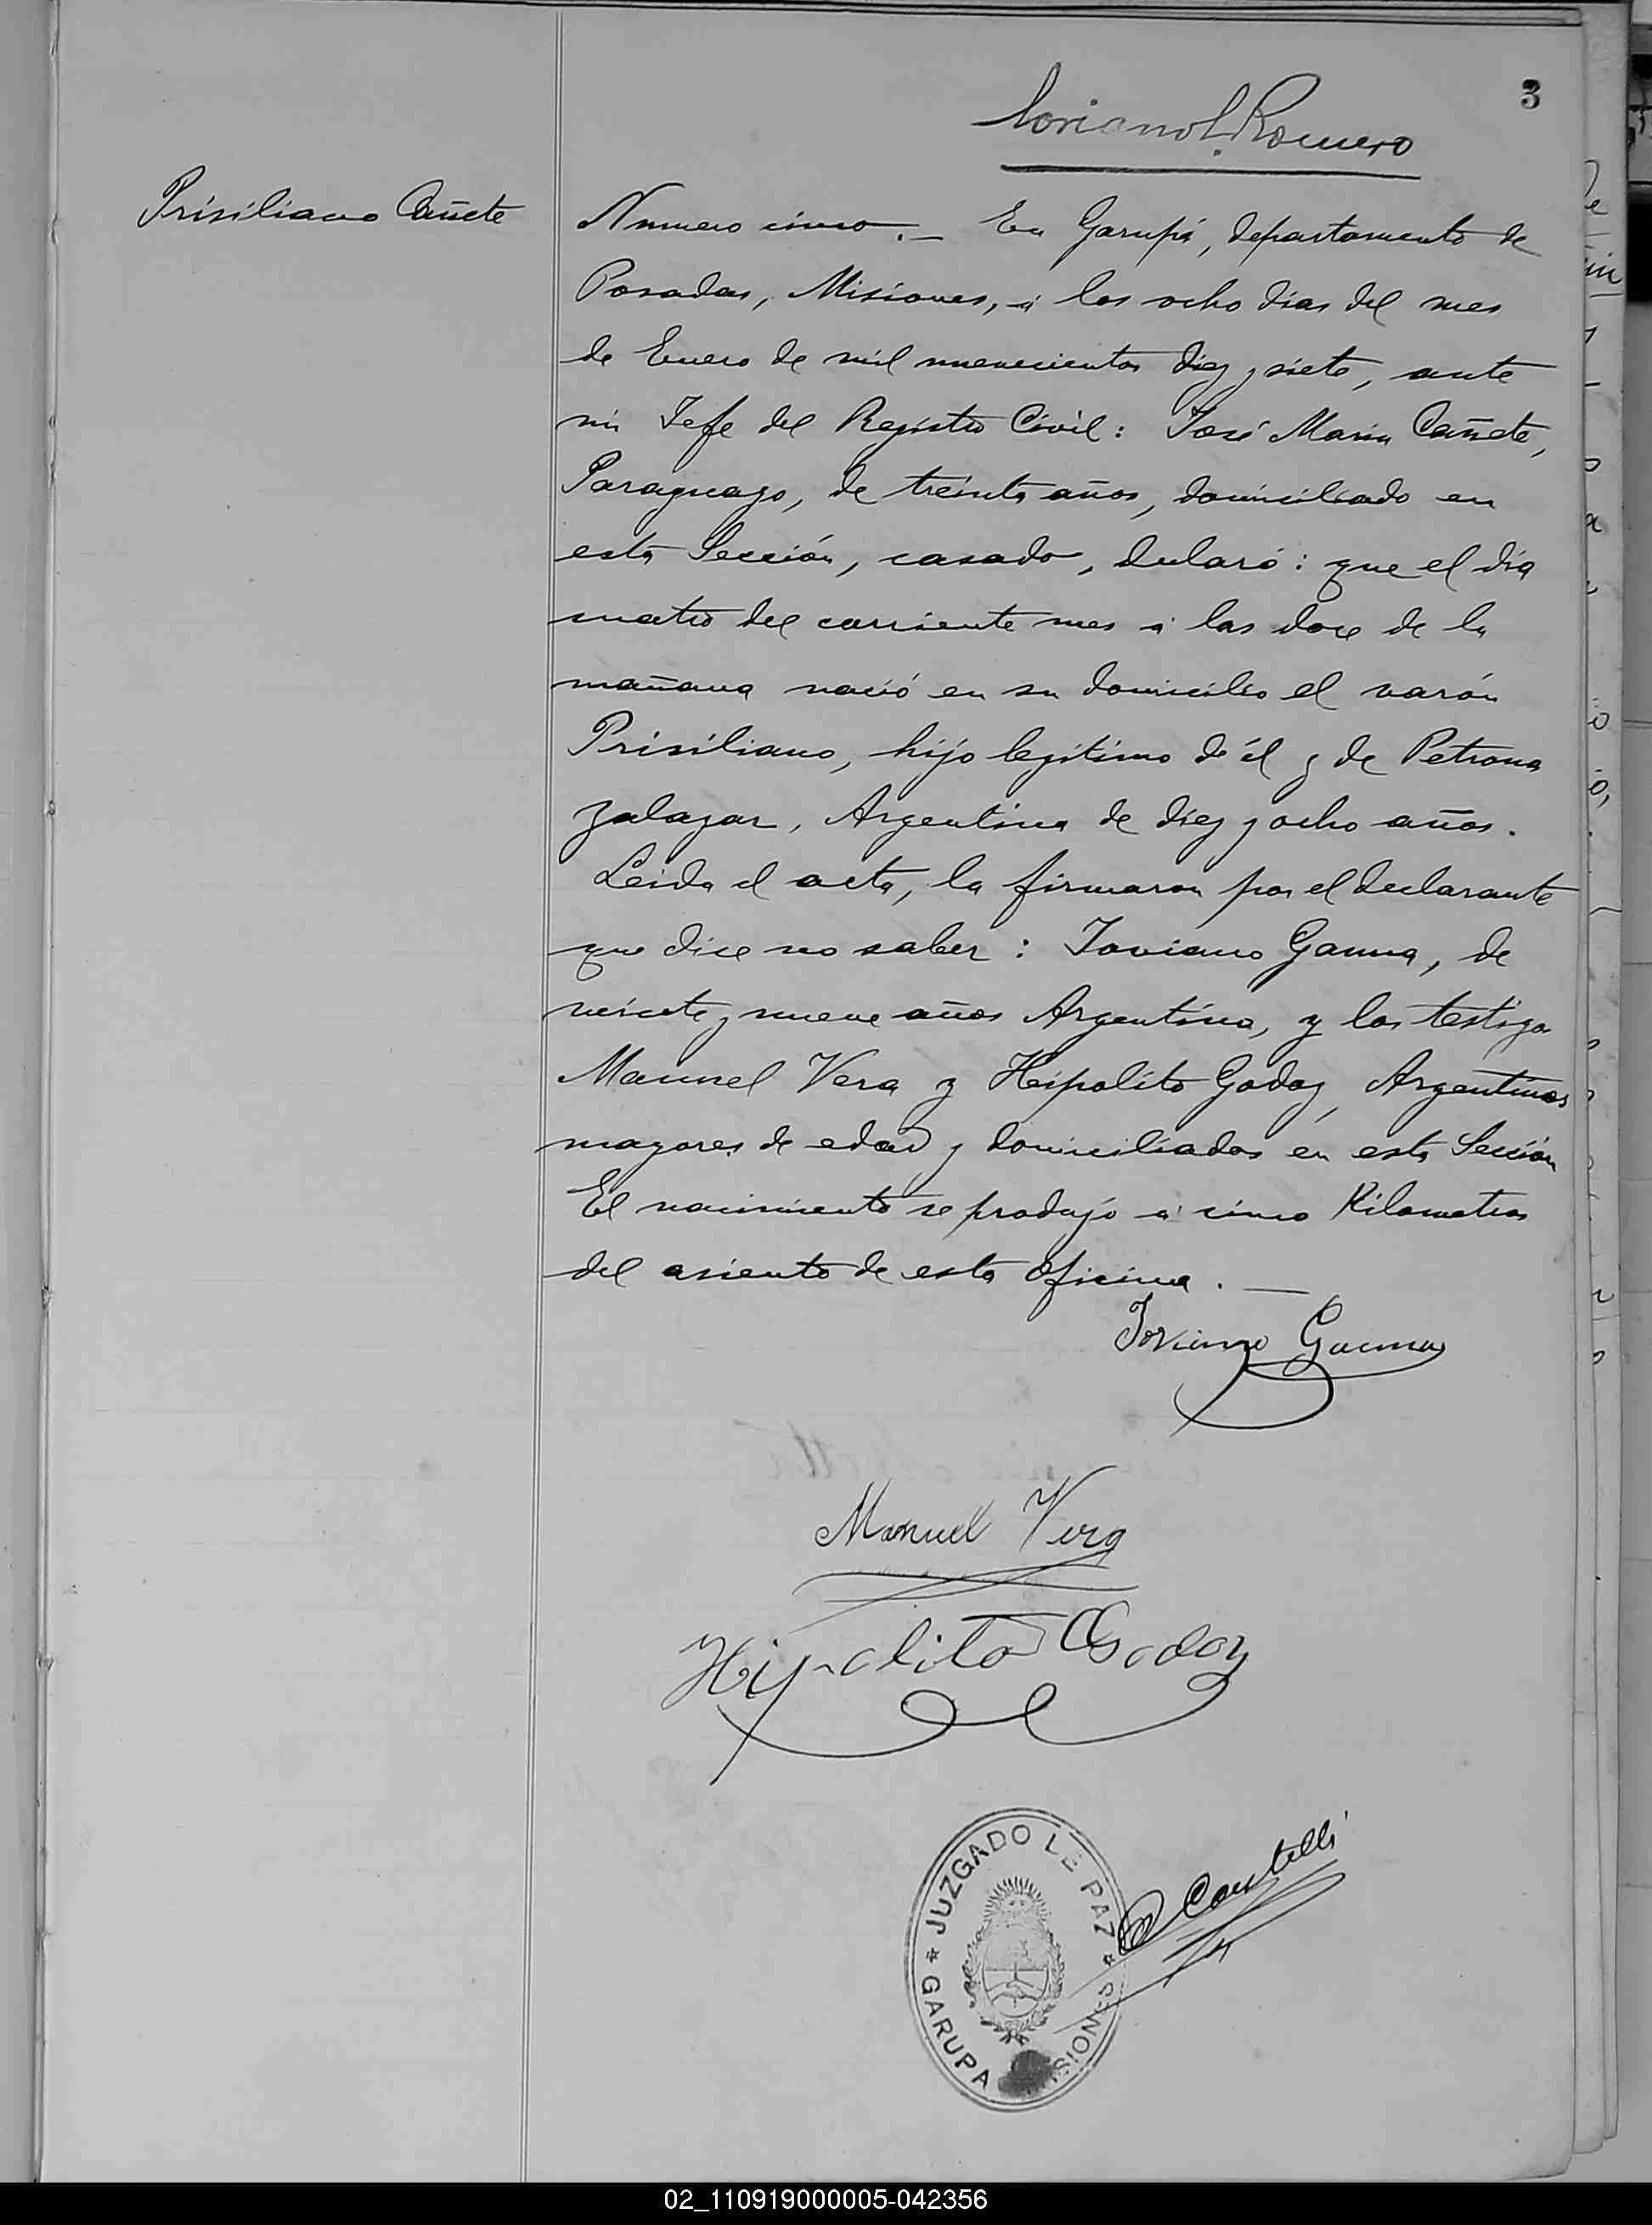 3
Loriano L. Romero
Prisiliano Cañete
Numero cinco._ En Garupá, departamento de
Posadas, Misiones, á los ocho dias del mes
de Enero de mil nuevecientos diez y siete, ante
mi Jefe del Registro Civil: José Maria Cañete,
Paraguayo, de treinta años, domiciliado en
esta Sección, casado, declaró: que el día
cuatro del corriente mes á las doce de la
mañana nació en su domicilio el varón
Prisiliano, hijo legítimo de él y de Petrona
Zalazar, Argentina de diez y ocho años.
Leida el acta, la firmaron por el declarante
que dice no saber: Joviano Gauna, de
veinte y nueve años Argentino, y los testigos
Manuel Vera y Heipolito Godoy, Argentinos
mayores de edad y domiciliados en esta Sección
El nacimiento se produjo a cinco Kilometros
del asiento de esta Oficina._
Joviano Gauna
Manuel Vera
Hipolito Godoy
JUZGADO DE PAZ
Cantelli
* GARUPA MISIONES *
02_110919000005-042356